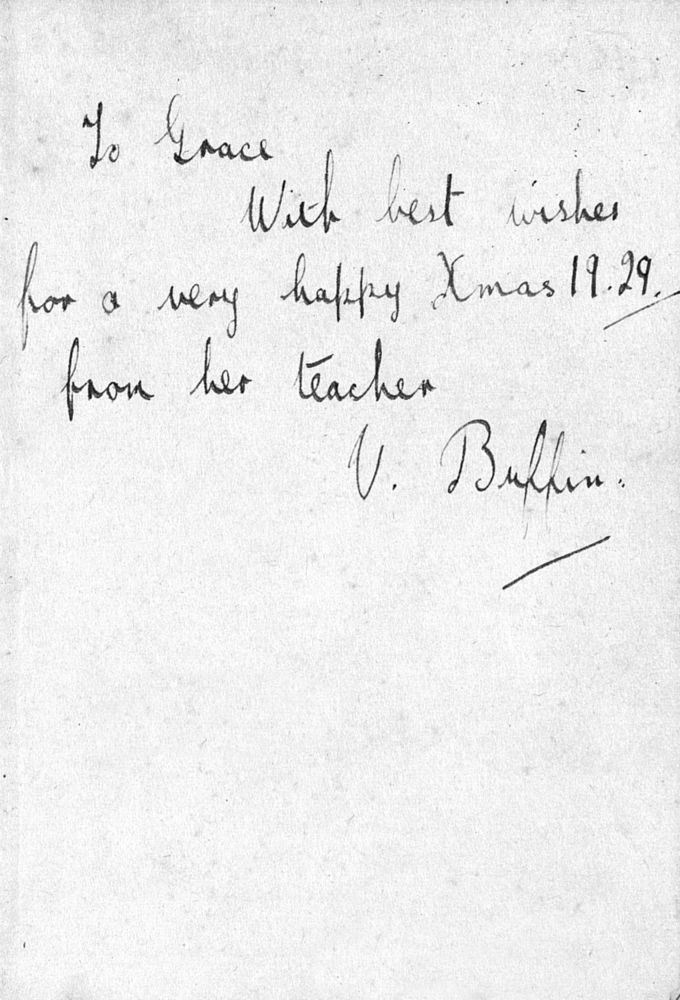 To Grace
With best wishes
for a very happy Xmas 19.29.
from her teacher
V. Buffin.